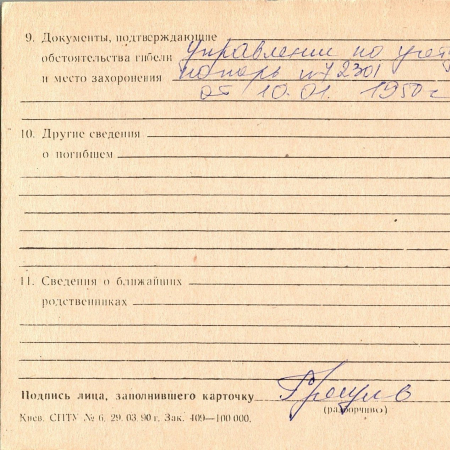 9. Документы, подтверждающие
обстоятельства гибели Управлении по учету
и место захоронения потерь №72301
от 10.01. 1950 г
10. Другие сведения
о погибшем
11. Сведения о ближайших
родственниках
Подпись лица, заполнившего карточку
(разборчиво)
Киев. СПТУ № 6. 29. 03. 90 г. Зак. 409—100 000.